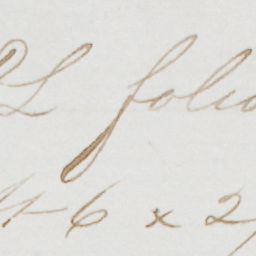 L folio
6 x 2